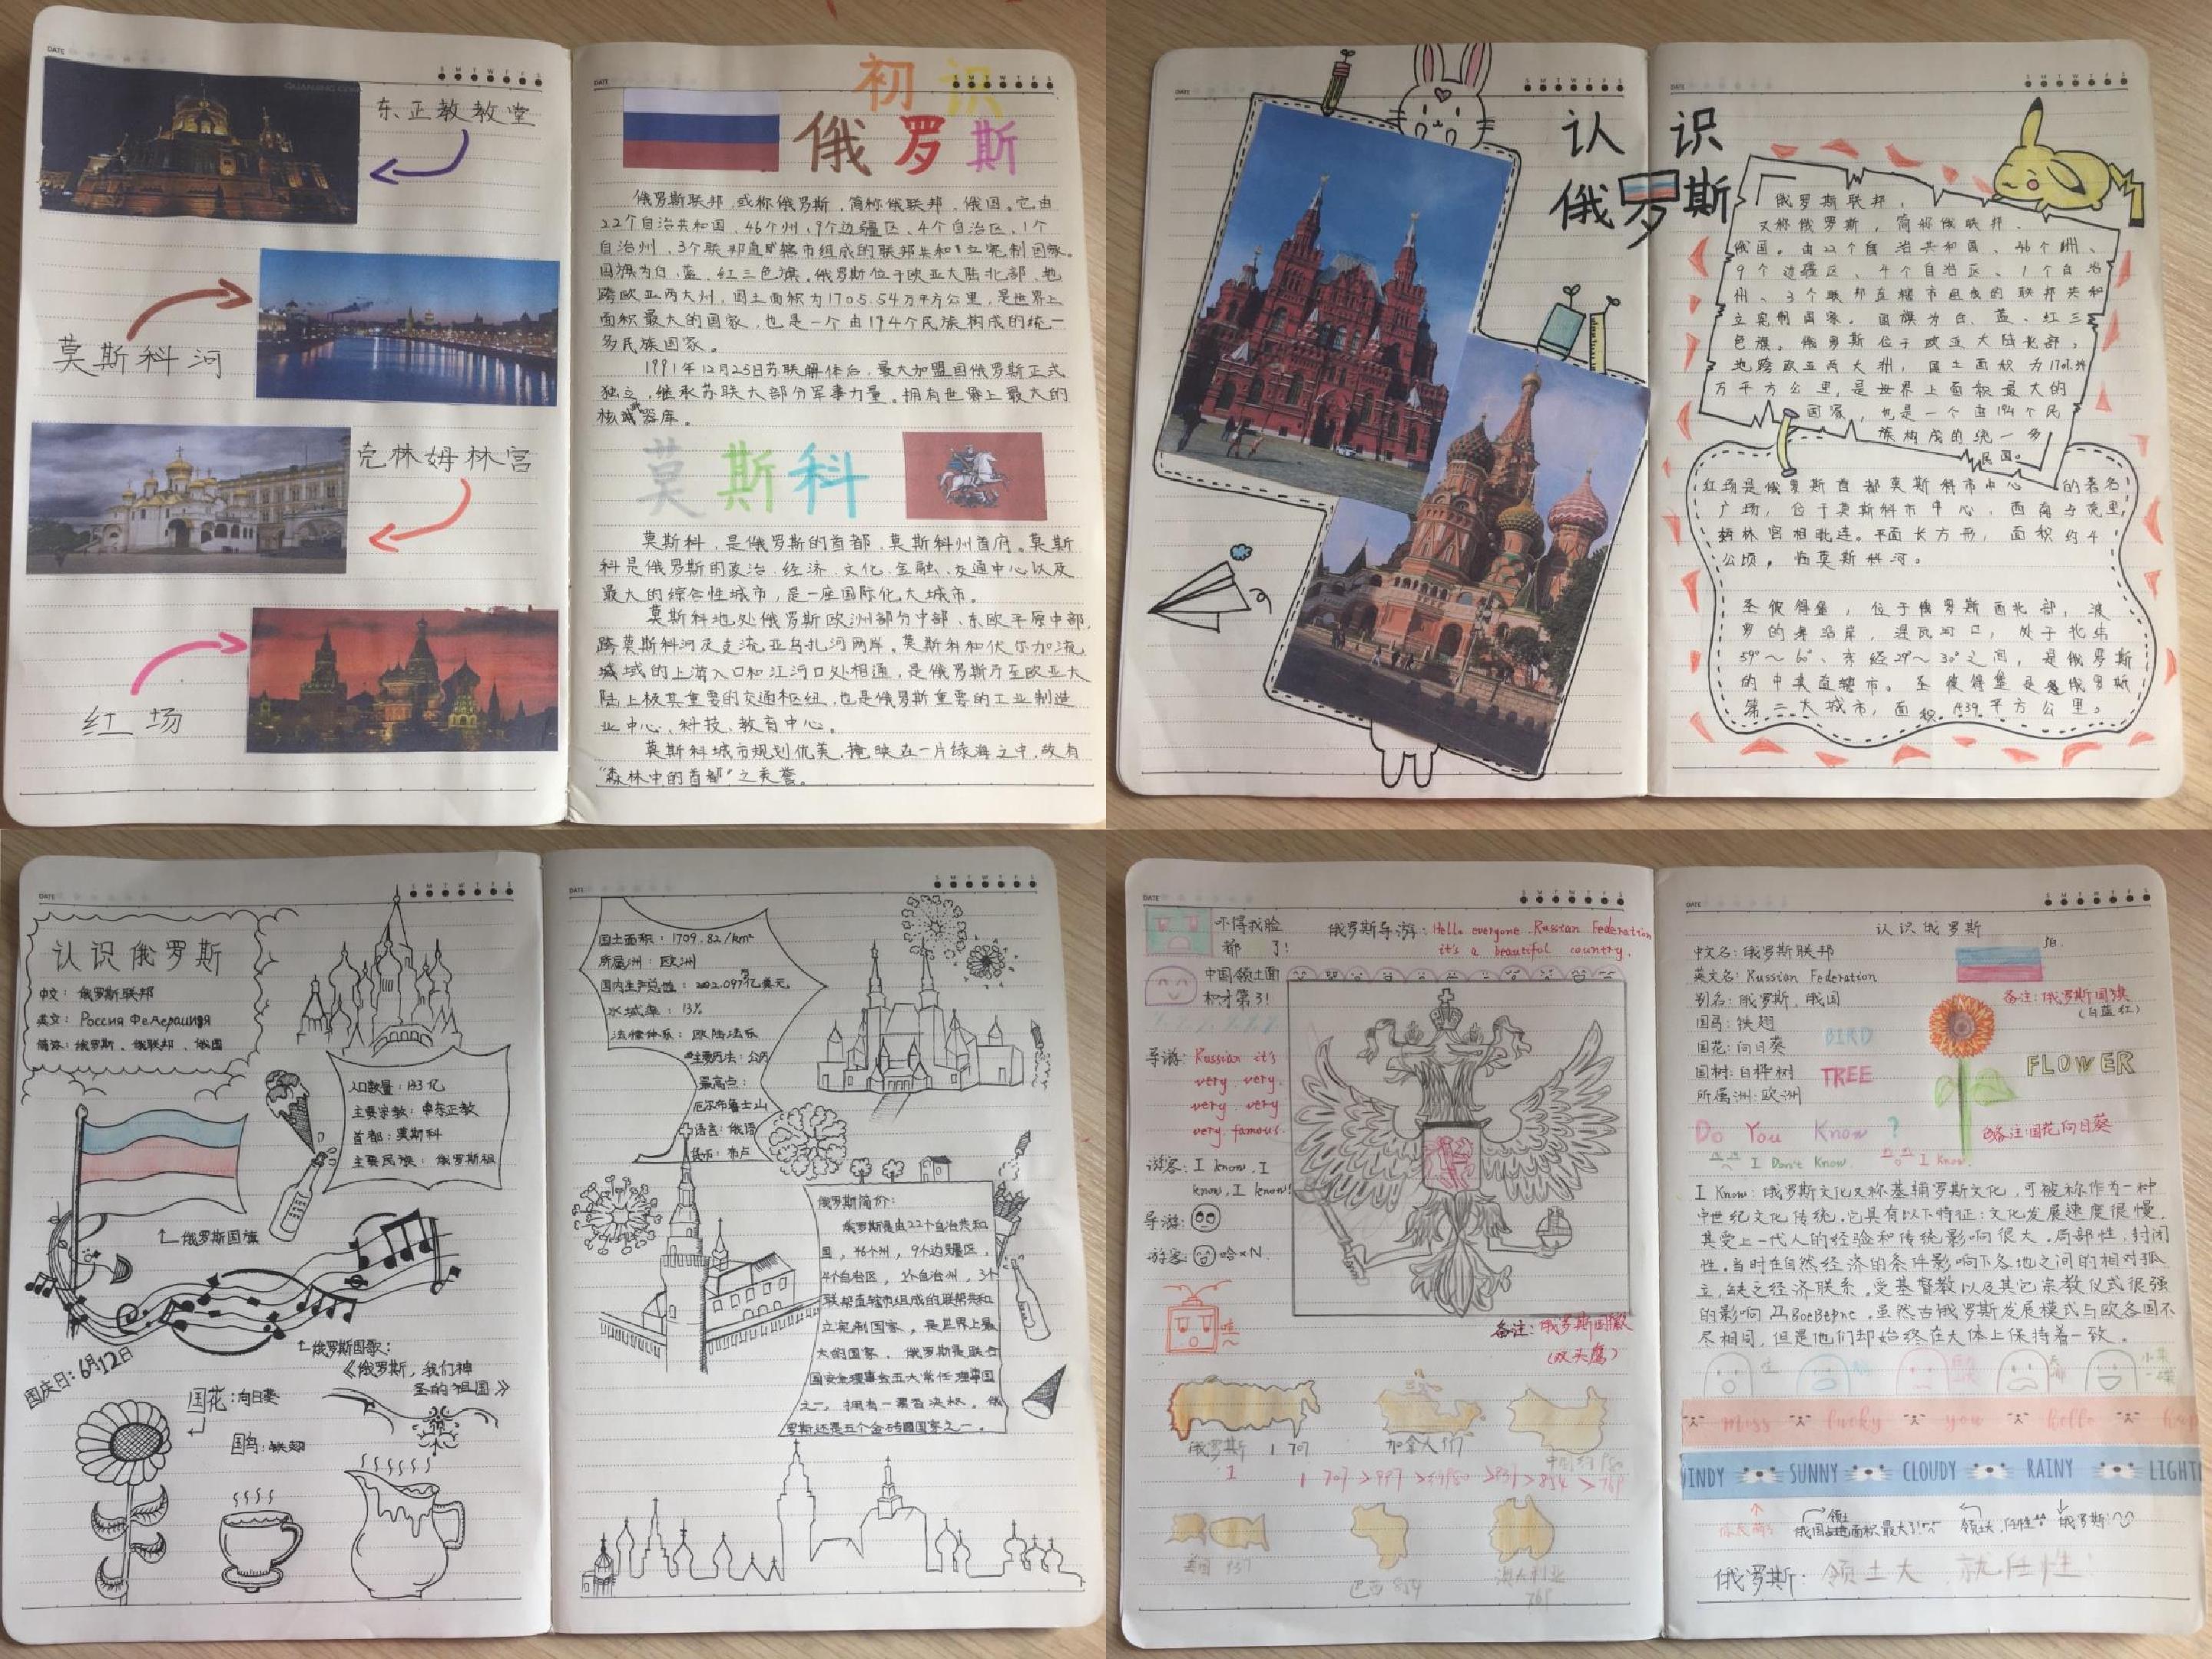 DATE
S M T W T F S
QUANJING.COM
东正教教堂
莫斯科河
克林姆林宫
红场
DATE
S M T W T F S
初识
俄罗斯
俄罗斯联邦,或称俄罗斯,简称俄联邦、俄国。它由
22个自治共和国、46个州、9个边疆区、4个自治区、1个
自治州、3个联邦直辖市组成的联邦共和立宪制国家。
国旗为白、蓝、红三色旗。俄罗斯位于欧亚大陆北部,地
跨欧亚两大州,国土面积为1705.54万平方公里,是世界上
面积最大的国家,也是一个由194个民族构成的统一
多民族国家。
1991年12月25日苏联解体后,最大加盟国俄罗斯正式
独立,继承苏联大部分军事力量。拥有世界上最大的
核武器库。
莫斯科
莫斯科,是俄罗斯的首都,莫斯科州首府。莫斯
科是俄罗斯的政治、经济、文化、金融、交通中心以及
最大的综合性城市,是一座国际化大城市。
莫斯科地处俄罗斯欧洲部分中部、东欧平原中部,
跨莫斯科河及支流亚乌扎河两岸。莫斯科和伏尔加流
域的上游入口和江河口处相通,是俄罗斯乃至欧亚大
陆上极其重要的交通枢纽,也是俄罗斯重要的工业制造
业中心、科技、教育中心。
莫斯科城市规划优美,掩映在一片绿海之中,故有
“森林中的首都”之美誉。
DATE
S M T W T F S
DATE
S M T W T F S
认识
俄罗斯
俄罗斯联邦,
又称俄罗斯,简称俄联邦、
俄国。由22个自治共和国、46个州、
9个边疆区、4个自治区、1个自治
州、3个联邦直辖市组成的联邦共和
立宪制国家。国旗为白、蓝、红三
色旗。俄罗斯位于欧亚大陆北部,
地跨欧亚两大洲,国土面积为
万平方公里,是世界上面积最大的
国家,也是一个由194个民
族构成的统一多
民国。
红场是俄罗斯首都莫斯科市中心的著名
广场,位于莫斯科市中心,西南与克里
姆林宫相毗连。平面长方形,面积约4
公顷。临莫斯科河。
圣彼得堡,位于俄罗斯西北部,波
罗的海沿岸,涅瓦河口,处于北纬
59°~60°、东经29°~30°之间,是俄罗斯
的中央直辖市。圣彼得堡是俄罗斯
第二大城市,面积1439平方公里。
DATE
S M T W T F S
认识俄罗斯
中文:俄罗斯联邦
英文:Россия Федерация
简称:俄罗斯、俄联邦、俄国
人口数量:1.43亿
主要宗教:东正教
首都:莫斯科
主要民族:俄罗斯族
俄罗斯国旗
俄罗斯国歌:
《俄罗斯,我们神
圣的祖国》
国庆日:6月12日
国花:向日葵
国鸟:铁翅
DATE
S M T W T F S
国土面积:1709.82/km²
所属洲:欧洲
水域率:13%
法律体系:欧陆法系
最高点:
厄尔布鲁士山
语言:俄语
俄罗斯简介:
俄罗斯是由22个自治共和
国,46个州,9个边疆区,
4个自治区,1个自治州,3个
联邦直辖市组成的联邦共和
立宪制国家,是世界上最
大的国家。俄罗斯是联合
国安全理事会五大常任理事国
之一,拥有一票否决权。俄
罗斯还是五个金砖国家之一。
DATE
S M T W T F S
吓得我脸
都 了!
中国领土面
积才第3!
俄罗斯导游:Hello everyone. Russian Federation
it's a beautiful country.
导游:Russian it's
very very.
very very
very very
very famous.
游客:I know. I
know, I know!
导游:
游客: 哈×N.
哇~
备注:俄罗斯国徽
(双头鹰)
俄罗斯 1707
加拿大 997
美国 937
巴西 854
澳大利亚
769
DATE
S M T W T F S
认识俄罗斯
中文名:俄罗斯联邦
英文名:Russian Federation
别名:俄罗斯,俄国
国鸟:铁翅
国花:向日葵
国树:白桦树
所属洲:欧洲
BIRD
TREE
FLOWER
备注:俄罗斯国旗
(白蓝红)
备注:国花向日葵
Do You Know ?
I Don't Know
I Know.
I Know:俄罗斯文化又称基辅罗斯文化,可被称作为一种
中世纪文化传统,它具有以下特征:文化发展速度很慢,
其受上一代人的经验和传统影响很大。局部性,封闭
性。当时在自然经济的条件影响下各地之间的相对孤
立,缺乏经济联系。受基督教以及其它宗教仪式很强
的影响 。虽然古俄罗斯发展模式与欧各国不
尽相同,但是他们却始终在大体上保持着一致。
miss lucky you hello
INDY SUNNY CLOUDY RAINY LIGHT
领土
俄国占地面积最大了!
领土大,任性 俄罗斯!
俄罗斯:领土大,就任性!